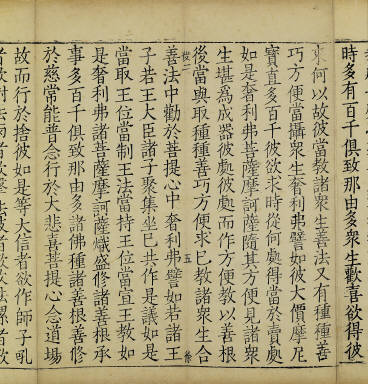 時多有百千俱致那由多衆生歡喜欲得彼
來何以故彼當教諸衆生善法又有種種善
巧方便當攝衆生奢利弗譬如彼大價摩尼
寶直多百千彼欲求時從何處得當於賣處
如是奢利弗菩薩摩訶薩隨其方便見諸衆
生堪為成器彼處彼處而作方便教以善根
後當與取種種善巧方便求已教諸衆生合
善法中勸於菩提心中奢利弗譬如若諸王
子若王大臣諸子聚集坐已共作是議如是
當取王位當制王法當持王位當宣王教如
是奢利弗諸菩薩摩訶薩熾盛修諸善根承
事多百千俱致那由多諸佛種諸善根善修
於慈常能普念行於大悲喜菩提心念道場
故而行於捨彼如是等大信者欲作師子吼